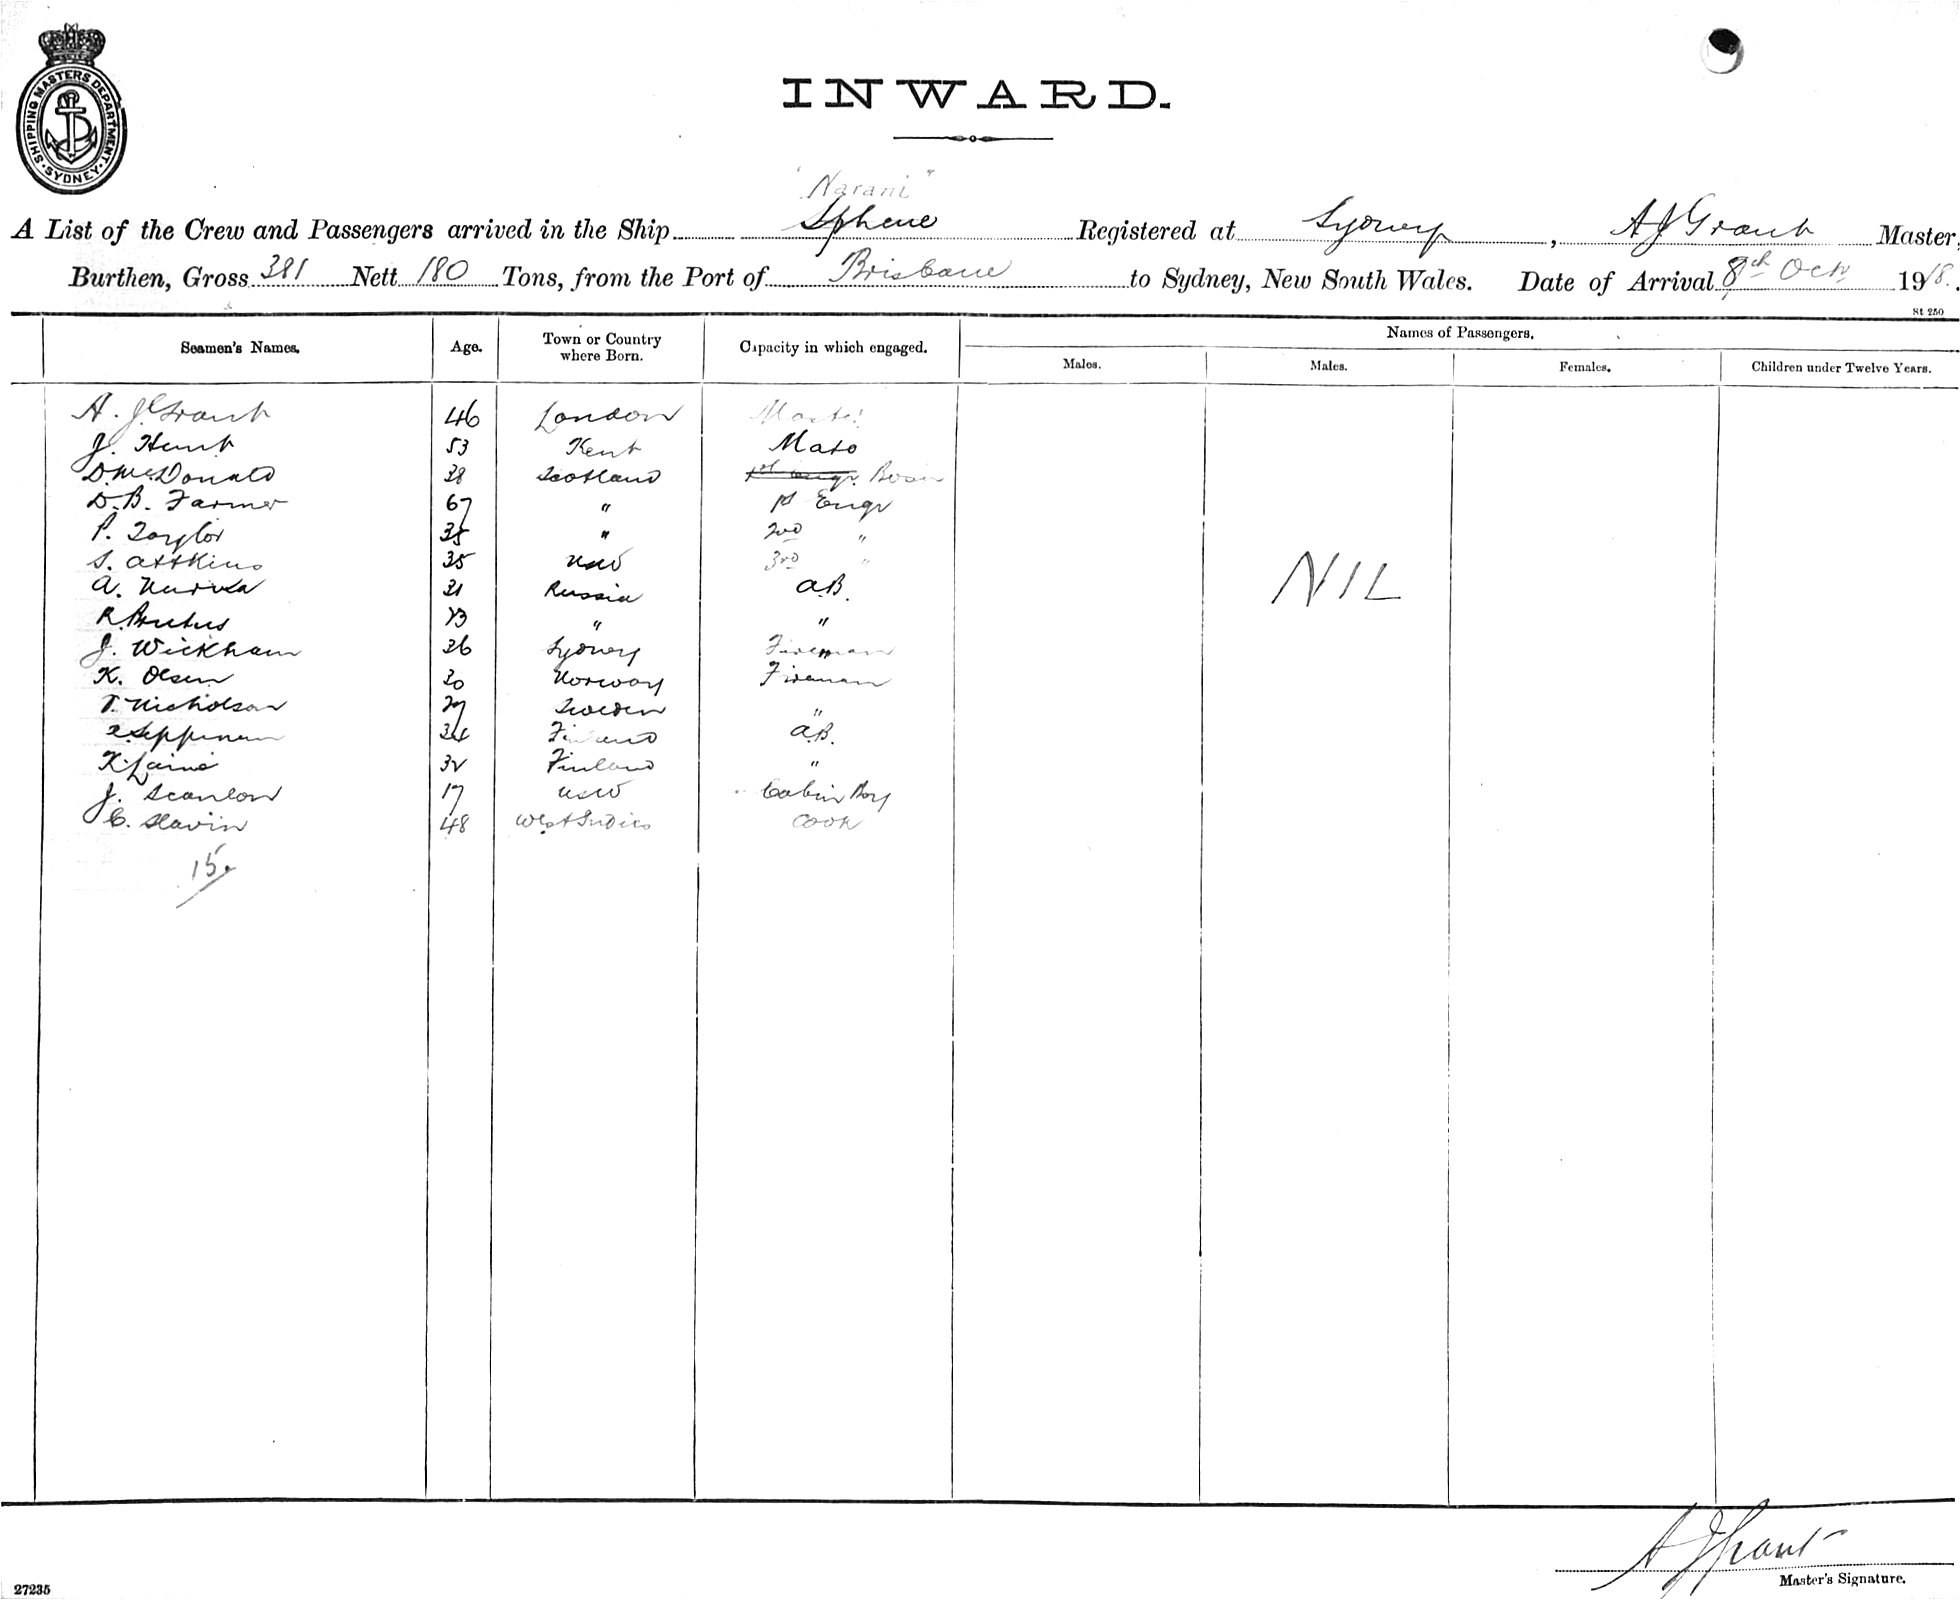 SHIPPING MASTERS DEPARTMENT. SYDNEY
INWARD.
"Narani"
A List of the Crew and Passengers arrived in the Ship Sphene Registered at Sydney, A J Grant Master,
Burthen, Gross 381 Nett 180 Tons, from the Port of Brisbane to Sydney, New South Wales. Date of Arrival 8th Oct 1918.
St 250
Seamen's Names. Age. Town or Country where Born. Capacity in which engaged. Names of Passengers.
Males. Males. Females. Children under Twelve Years.
A. J. Grant 46 London Master
J. Hunt 53 Kent Mate
D. McDonald 38 Scotland 1st Engr. Bosun
D. B. Farmer 67 " 1st Engr
P. Taylor 35 " 2nd "
S. Attkins 35 NSW 3rd "
A. 31 Russia A.B.
R. 23 " "
J. Wickham 26 Sydney Fireman
K. Olsen 30 Norway Fireman
T. Nicholson 29 Sweden "
Seppinen 34 Finland A.B.
K. Laine 32 Finland "
J. Scanlon 17 NSW Cabin Boy
C. Slavin 48 West Indies Cook
NIL
15.
A J Grant
Master's Signature.
27235